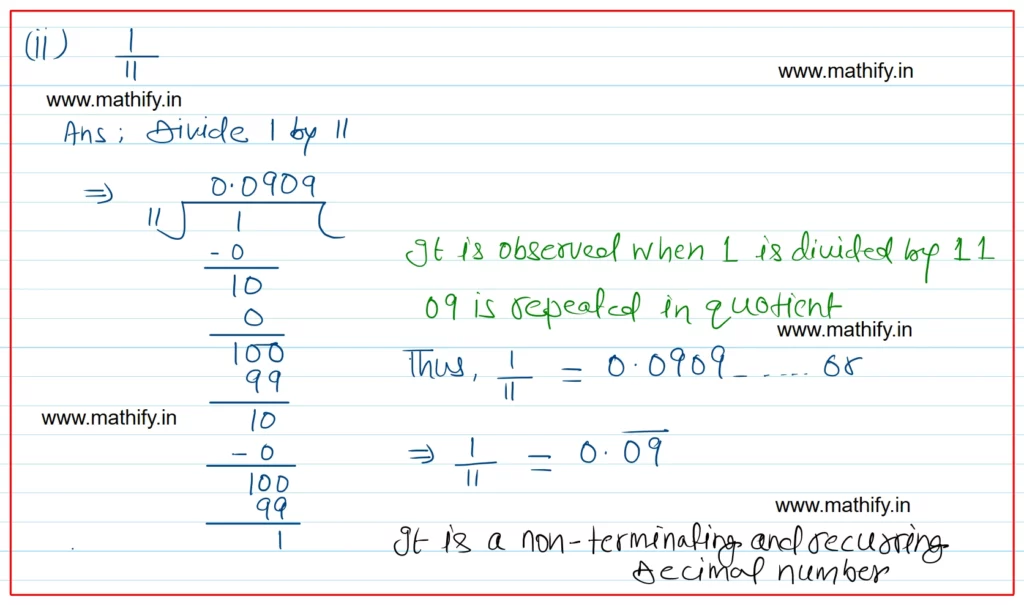 (ii) 1/11
www.mathify.in
www.mathify.in
Ans ; Divide 1 by 11
⇒ 0.0909
11 1
- 0
10
0
100
99
10
- 0
100
99
1
www.mathify.in
It is observed when 1 is divided by 11
09 is repeated in quotient
www.mathify.in
Thus, 1/11 = 0.0909_ ..... or
⇒ 1/11 = 0.0̅9̅
www.mathify.in
It is a non-terminating and recurring
Decimal number